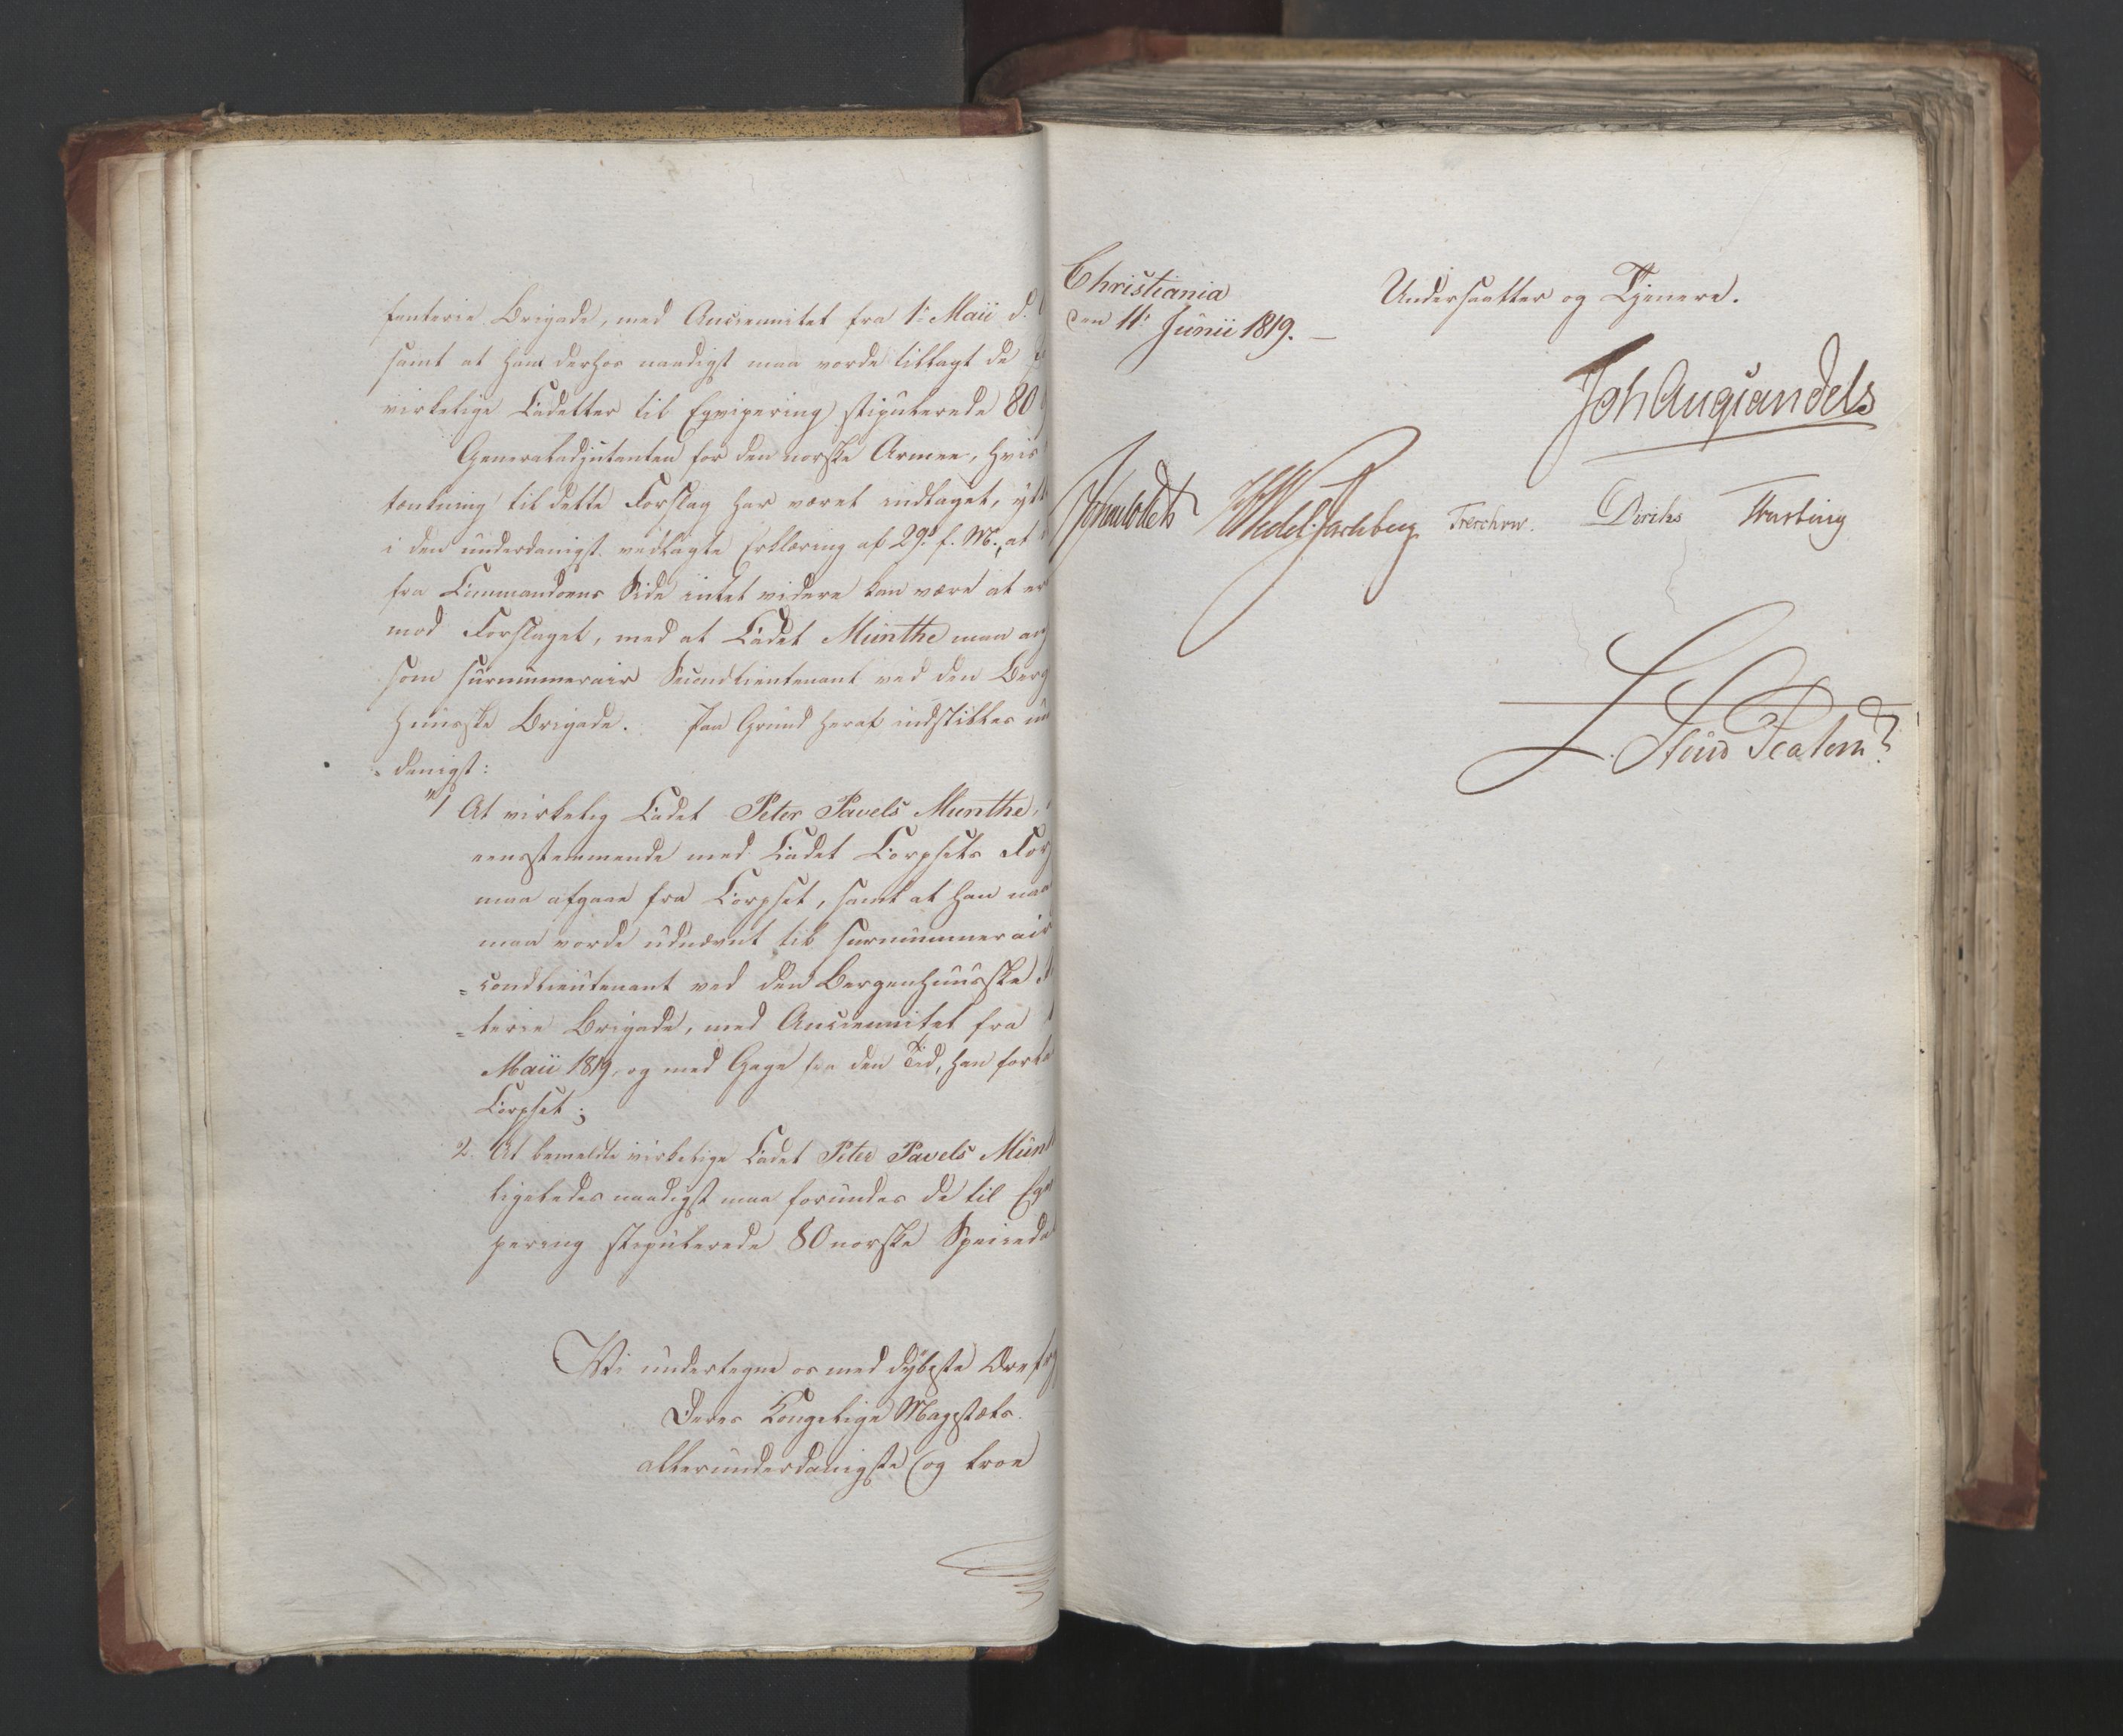 fanterie Brigade, med Anciennitet fra 1ste Maii d.
samt at ham derhos naadigst maa vorde tillagt de
virkelige Cadetter til Eqvipering stipulerede 80
Generaladjutanten for den norske Armee, hvis
tænkning til dette Forslag har været indtaget, ytt
i den underdanigst vedlagte Erklæring af 29d f. M., at
fra Commandoens Side intet videre kan være at er
mod Forslaget, med at Cadet Munthe maa an
som surnummerair Secondlieutenant ved den Berg
huusske Brigade. Paa Grund heraf indstilles un
danigst:
"1 At virkelig Cadet Peter Pavels Munthe,
eensstemmende med Cadet Corpsets For
maa afgaae fra Corpset, samt at han naa
maa vorde udnævnt til surnummerair
condlieutenant ved den Bergenhuusske
terie Brigade, med Anciennitet fra 1
Maii 1819, og med Gage fra den Tid, han forla
Corpset;
2 At bemeldte virkelige Cadet Peter Pavels Munt
ligeledes naadigst maa forundes de til Eqvi
pering stipulerede 80 norske Speciedal
Vi undertegne os med dybeste Ærefry
Deres Kongelige Majestæts
allerunderdanigste og troe
Christiania
den 11t Junii 1819. —
Undersaatter og Tjenere.
Joh Aug Sandels
Sommhielm
HWedel Jarlsberg Treschow. Diriks Krebs